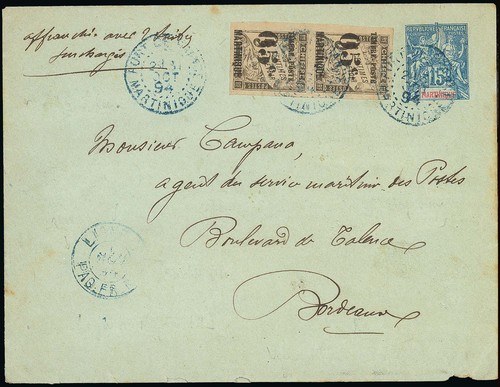 affranchie avec 2 Timbres
surchargés
FORT DE FRANCE
OCT
94
MARTINIQUE
TIMBRE-POSTE
05 c.
MARTINIQUE
TIMBRE-POSTE
05 c.
MARTINIQUE
RÉPUBLIQUE FRANÇAISE
15
MARTINIQUE
94
MARTINIQUE
Monsieur Campana,
agent du service maritime des Postes
Boulevard de Talence
Bordeaux